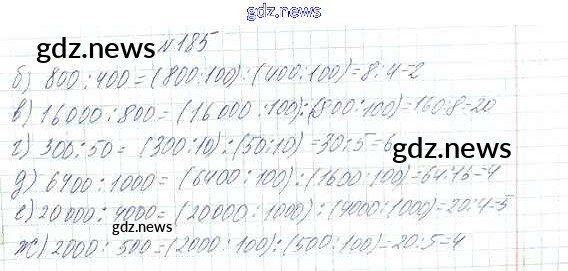 gdz.news
№185
gdz.news
б) 800:400=(800:100):(400:100)=8:4=2
в) 16000:800=(16000:100):(800:100)=160:8=20
г) 300:50=(300:10):(50:10)=30:5=6
gdz.news
д) 6400:1000=(6400:100):(1600:100)=64:16=4
е) 20000:4000=(20000:1000):(4000:1000)=20:4=5
ж) 2000:500=(2000:100):(500:100)=20:5=4
gdz.news